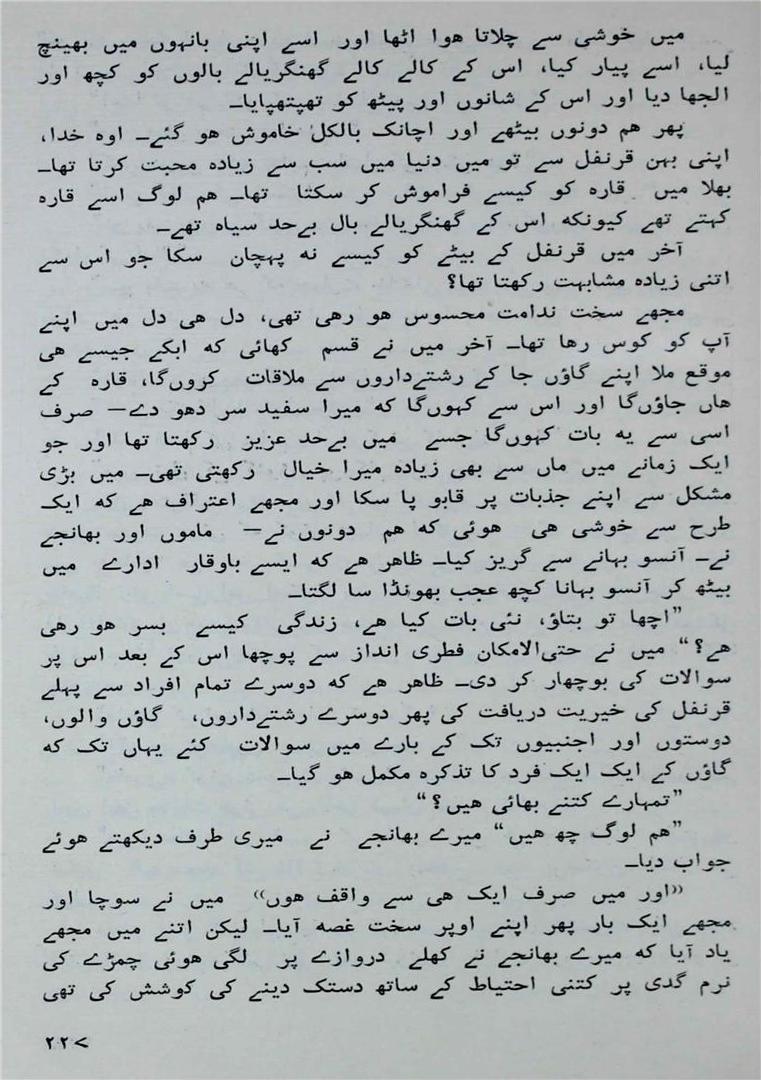 میں خوشی سے چلاتا ھوا اٹھا اور اسے اپنی بانہوں میں بھینچ
لیا، اسے پیار کیا، اس کے کالے کالے گھنگریالے بالوں کو کچھ اور
الجھا دیا اور اس کے شانوں اور پیٹھ کو تھپتھپایا۔
پھر ھم دونوں بیٹھے اور اچانک بالکل خاموش ھو گئے۔ اوہ خدا،
اپنی بہن قرنفل سے تو میں دنیا میں سب سے زیادہ محبت کرتا تھا۔
بھلا میں قارہ کو کیسے فراموش کر سکتا تھا۔ ھم لوگ اسے قارہ
کہتے تھے کیونکہ اس کے گھنگریالے بال بےحد سیاہ تھے۔
آخر میں قرنفل کے بیٹے کو کیسے نہ پہچان سکا جو اس سے
اتنی زیادہ مشابہت رکھتا تھا؟
مجھے سخت ندامت محسوس ھو رھی تھی، دل ھی دل میں اپنے
آپ کو کوس رھا تھا۔ آخر میں نے قسم کھائی کہ ابکے جیسے ھی
موقع ملا اپنے گاؤں جا کے رشتےداروں سے ملاقات کروںگا، قارہ کے
ھاں جاؤںگا اور اس سے کہوںگا کہ میرا سفید سر دھو دے— صرف
اسی سے یہ بات کہوںگا جسے میں بےحد عزیز رکھتا تھا اور جو
ایک زمانے میں ماں سے بھی زیادہ میرا خیال رکھتی تھی۔ میں بڑی
مشکل سے اپنے جذبات پر قابو پا سکا اور مجھے اعتراف ھے کہ ایک
طرح سے خوشی ھی ھوئی کہ ھم دونوں نے— ماموں اور بھانجے
نے۔ آنسو بہانے سے گریز کیا۔ ظاھر ھے کہ ایسے باوقار ادارے میں
بیٹھ کر آنسو بہانا کچھ عجب بھونڈا سا لگتا۔
”اچھا تو بتاؤ، نئی بات کیا ھے، زندگی کیسے بسر ھو رھی
ھے؟“ میں نے حتیالامکان فطری انداز سے پوچھا اس کے بعد اس پر
سوالات کی بوچھار کر دی۔ ظاھر ھے کہ دوسرے تمام افراد سے پہلے
قرنفل کی خیریت دریافت کی پھر دوسرے رشتےداروں، گاؤں والوں،
دوستوں اور اجنبیوں تک کے بارے میں سوالات کئے یہاں تک کہ
گاؤں کے ایک ایک فرد کا تذکرہ مکمل ھو گیا۔
”تمہارے کتنے بھائی ھیں؟“
”ھم لوگ چھ ھیں“ میرے بھانجے نے میری طرف دیکھتے ھوئے
جواب دیا۔
«اور میں صرف ایک ھی سے واقف ھوں» میں نے سوچا اور
مجھے ایک بار پھر اپنے اوپر سخت غصہ آیا۔ لیکن اتنے میں مجھے
یاد آیا کہ میرے بھانجے نے کھلے دروازے پر لگی ھوئی چمڑے کی
نرم گدی پر کتنی احتیاط کے ساتھ دستک دینے کی کوشش کی تھی
۲۲۷